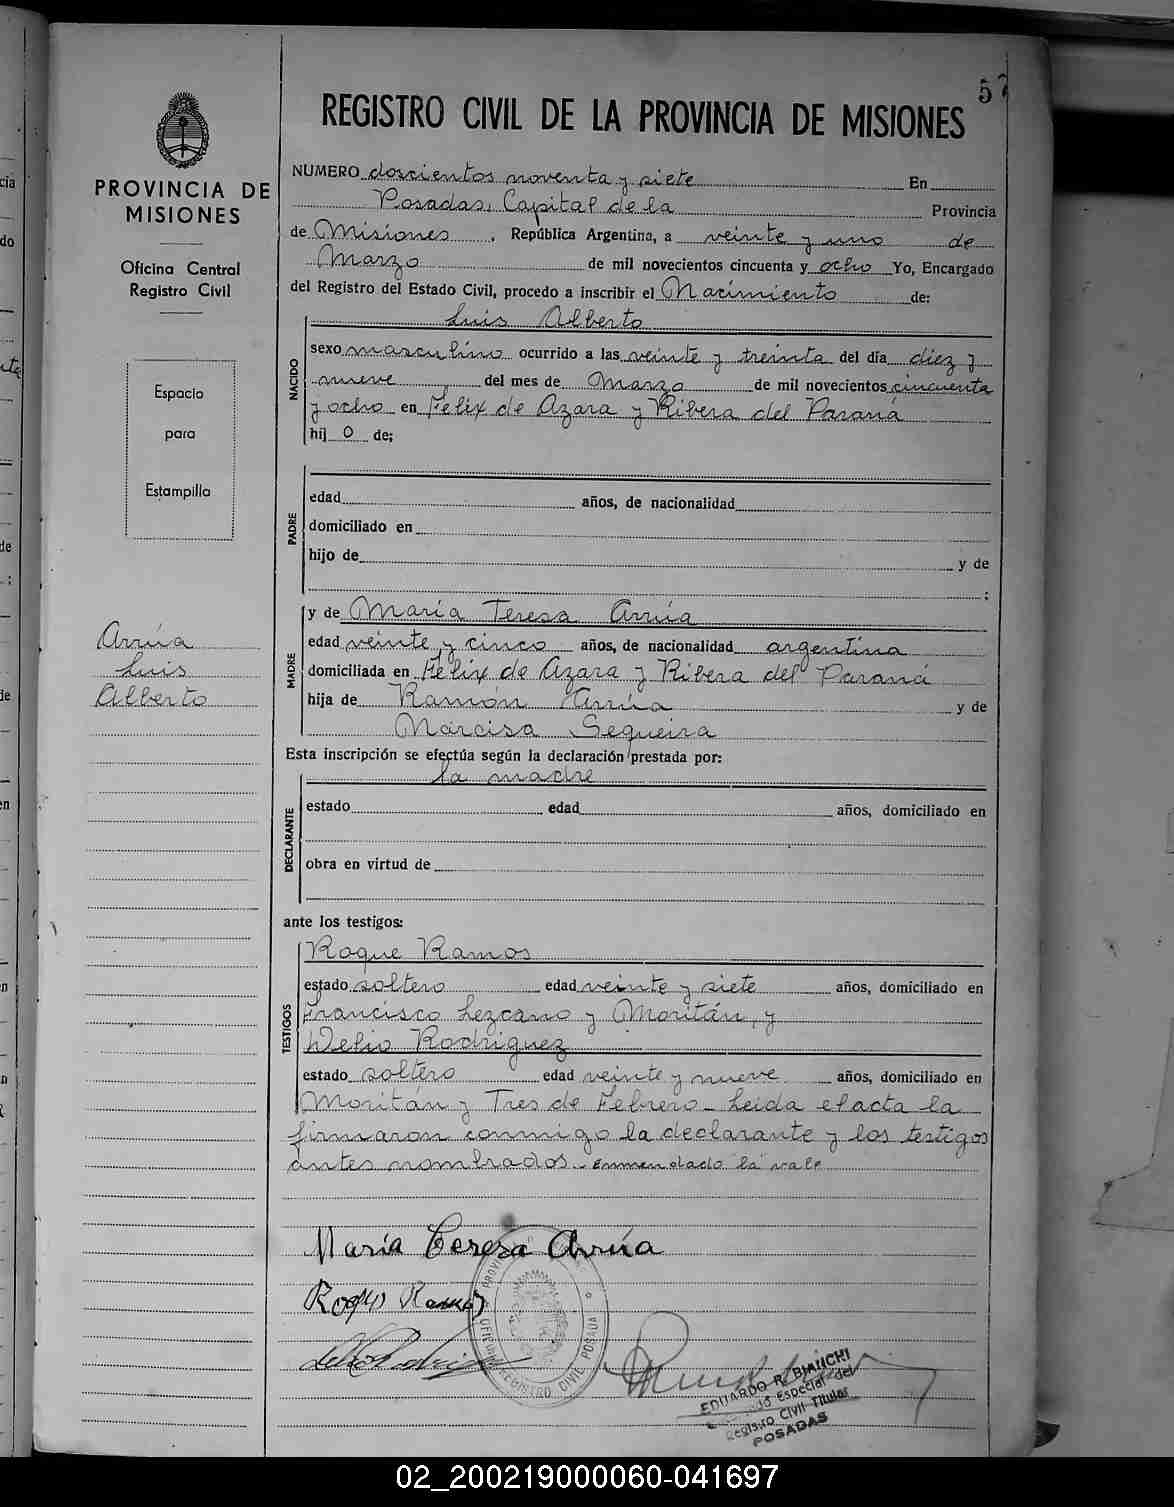 57
REGISTRO CIVIL DE LA PROVINCIA DE MISIONES
PROVINCIA DE
MISIONES
Oficina Central
Registro Civil
Espacio
para
Estampilla
Arrúa
Luis
Alberto
NUMERO doscientos noventa y siete En
Posadas, Capital de la Provincia
de Misiones, República Argentina, a veinte y uno de
Marzo de mil novecientos cincuenta y ocho Yo, Encargado
del Registro del Estado Civil, procedo a inscribir el Nacimiento de:
Luis Alberto
NACIDO
sexo masculino ocurrido a las veinte y treinta del día diez y
nueve del mes de Marzo de mil novecientos cincuenta
y ocho en Félix de Azara y Ribera del Paraná
hij o de;
PADRE
edad años, de nacionalidad
domiciliado en
hijo de y de
;
MADRE
y de María Teresa Arrúa
edad veinte y cinco años, de nacionalidad argentina
domiciliada en Félix de Azara y Ribera del Paraná
hija de Ramón Arrúa y de
Narcisa Sequeira
Esta inscripción se efectúa según la declaración prestada por:
la madre
DECLARANTE
estado edad años, domiciliado en
obra en virtud de
ante los testigos:
TESTIGOS
Roque Ramos
estado soltero edad veinte y siete años, domiciliado en
Francisco Lezcano y Moritán, y
Delio Rodriguez
estado soltero edad veinte y nueve años, domiciliado en
Moritán y Tres de Febrero - Leída el acta la
firmaron conmigo la declarante y los testigos
antes nombrados. - Enmendado "la" vale
María Teresa Arrúa
Roque Ramos
EDUARDO R. BIANCHI
Especial del
Registro Civil Titular
POSADAS
REGISTRO CIVIL POSADAS
02_200219000060-041697